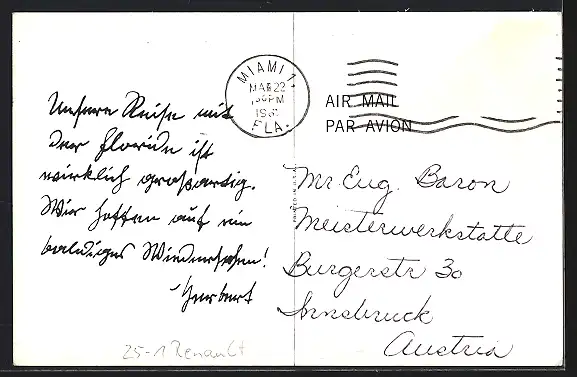 Unsere Reise mit
der Florida ist
wirklich großartig.
Wir hoffen auf ein
baldiges Wiedersehen!
Herbert
MIAMI 7,
MAR 22
PM
FLA.
AIR MAIL
PAR AVION
Mr Eug. Baron
Meisterwerkstatte
Burgerstr 30
Innsbruck
Austria
25-1 Renault